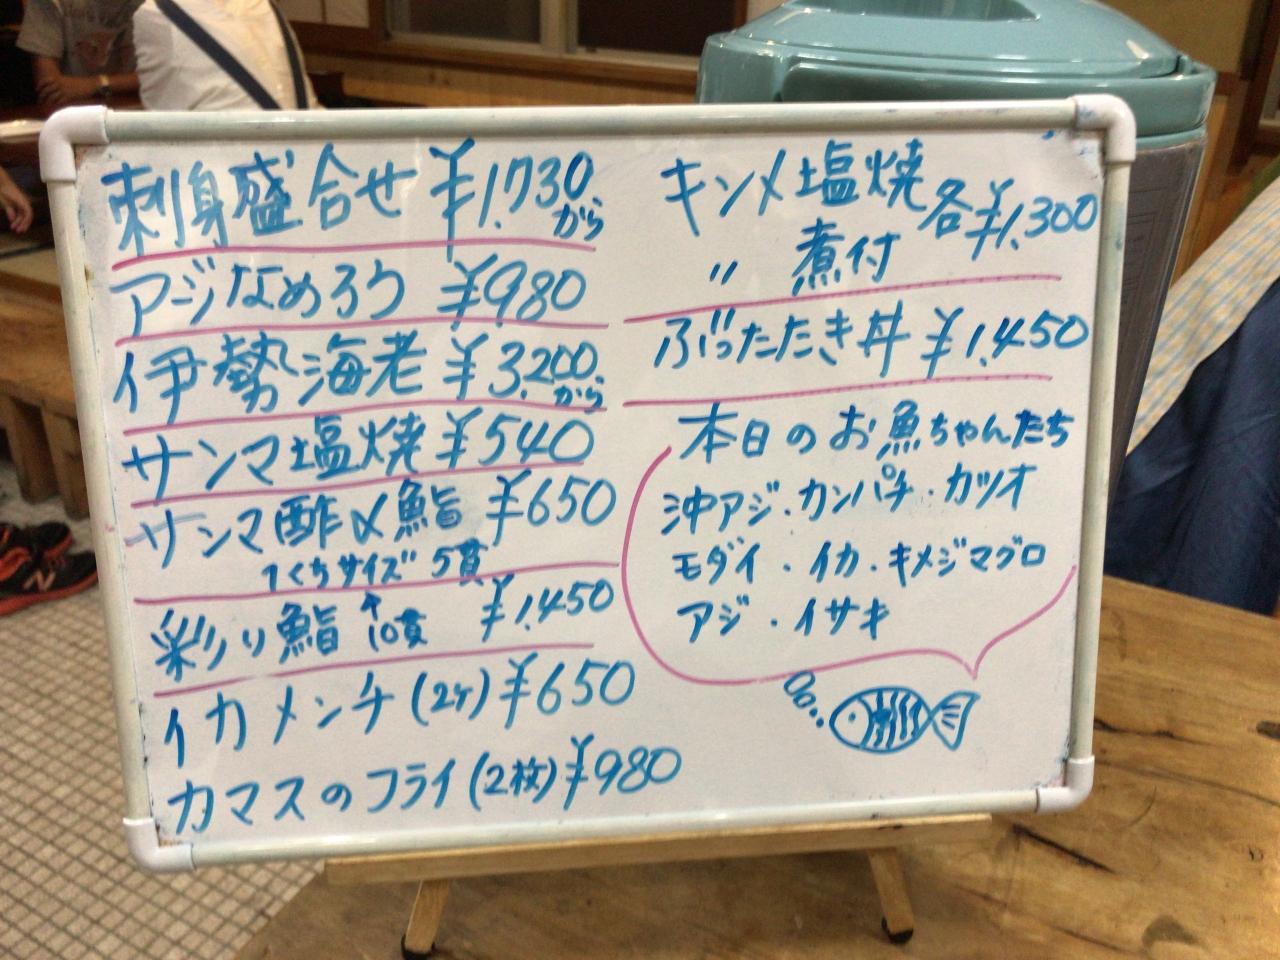 刺身盛合せ ¥1.730から
アジなめろう ¥980
伊勢海老 ¥3.200から
サンマ塩焼 ¥540
サンマ酢〆鮨 ¥650
1くちサイズ 5貫
彩り鮨 10貫 ¥1.450
イカメンチ(2ヶ) ¥650
カマスのフライ(2枚) ¥980
キンメ塩焼 各¥1.300
〃 煮付
ぶったたき丼 ¥1.450
本日のお魚ちゃんたち
沖アジ・カンパチ・カツオ
モダイ・イカ・キメジマグロ
アジ・イサキ